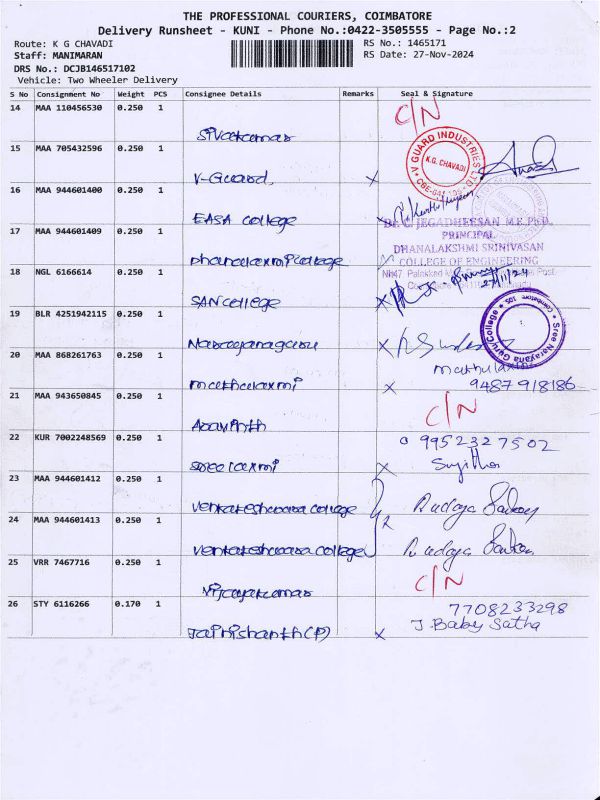 THE PROFESSIONAL COURIERS, COIMBATORE
Delivery Runsheet - KUNI - Phone No.:0422-3505555 - Page No.:2
Route: K G CHAVADI
RS No.: 1465171
Staff: MANIMARAN
RS Date: 27-Nov-2024
DRS No.: DCJB146517102
Vehicle: Two Wheeler Delivery
S No Consignment No Weight PCS Consignee Details Remarks Seal & Signature
14 MAA 110456530 0.250 1
C/N
Sivakumar
15 MAA 705432596 0.250 1
V GUARD INDUSTRIES LTD
K.G. CHAVADI
V-Guard
16 MAA 944601400 0.250 1
EASA college
17 MAA 944601409 0.250 1
Dr. C. JEGADHEESAN M.E,Ph.D,
PRINCIPAL
DHANALAKSHMI SRINIVASAN
COLLEGE OF ENGINEERING
Dhanalaxmi College
18 NGL 6166614 0.250 1
NH47
27/11/24
SAN college
19 BLR 4251942115 0.250 1
Sree Narayana Guru College * Coimbatore 105
Narayanaguru
20 MAA 868261763 0.250 1
Mathulaxmi
9487 918186
21 MAA 943650845 0.250 1
C/N
Aravinth
22 KUR 7002248569 0.250 1
9952327502
Sreelaxmi
Sujitha
23 MAA 944601412 0.250 1
Venkateshwara college
2
24 MAA 944601413 0.250 1
Venkateshwara college
25 VRR 7467716 0.250 1
C/N
Vijayakumar
26 STY 6116266 0.170 1
7708233298
J. Baby Satha
Jai Nishanth (P)